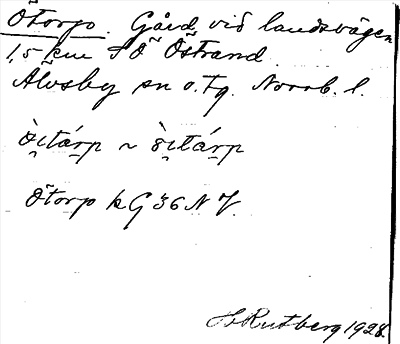 Ötorp. Gård vid landsvägen
1,5 km SÖ Östrand.
Älvsby sn o. tg. Norrb. l.
Ötorp kG 36 N V.
H Rutberg 1928.